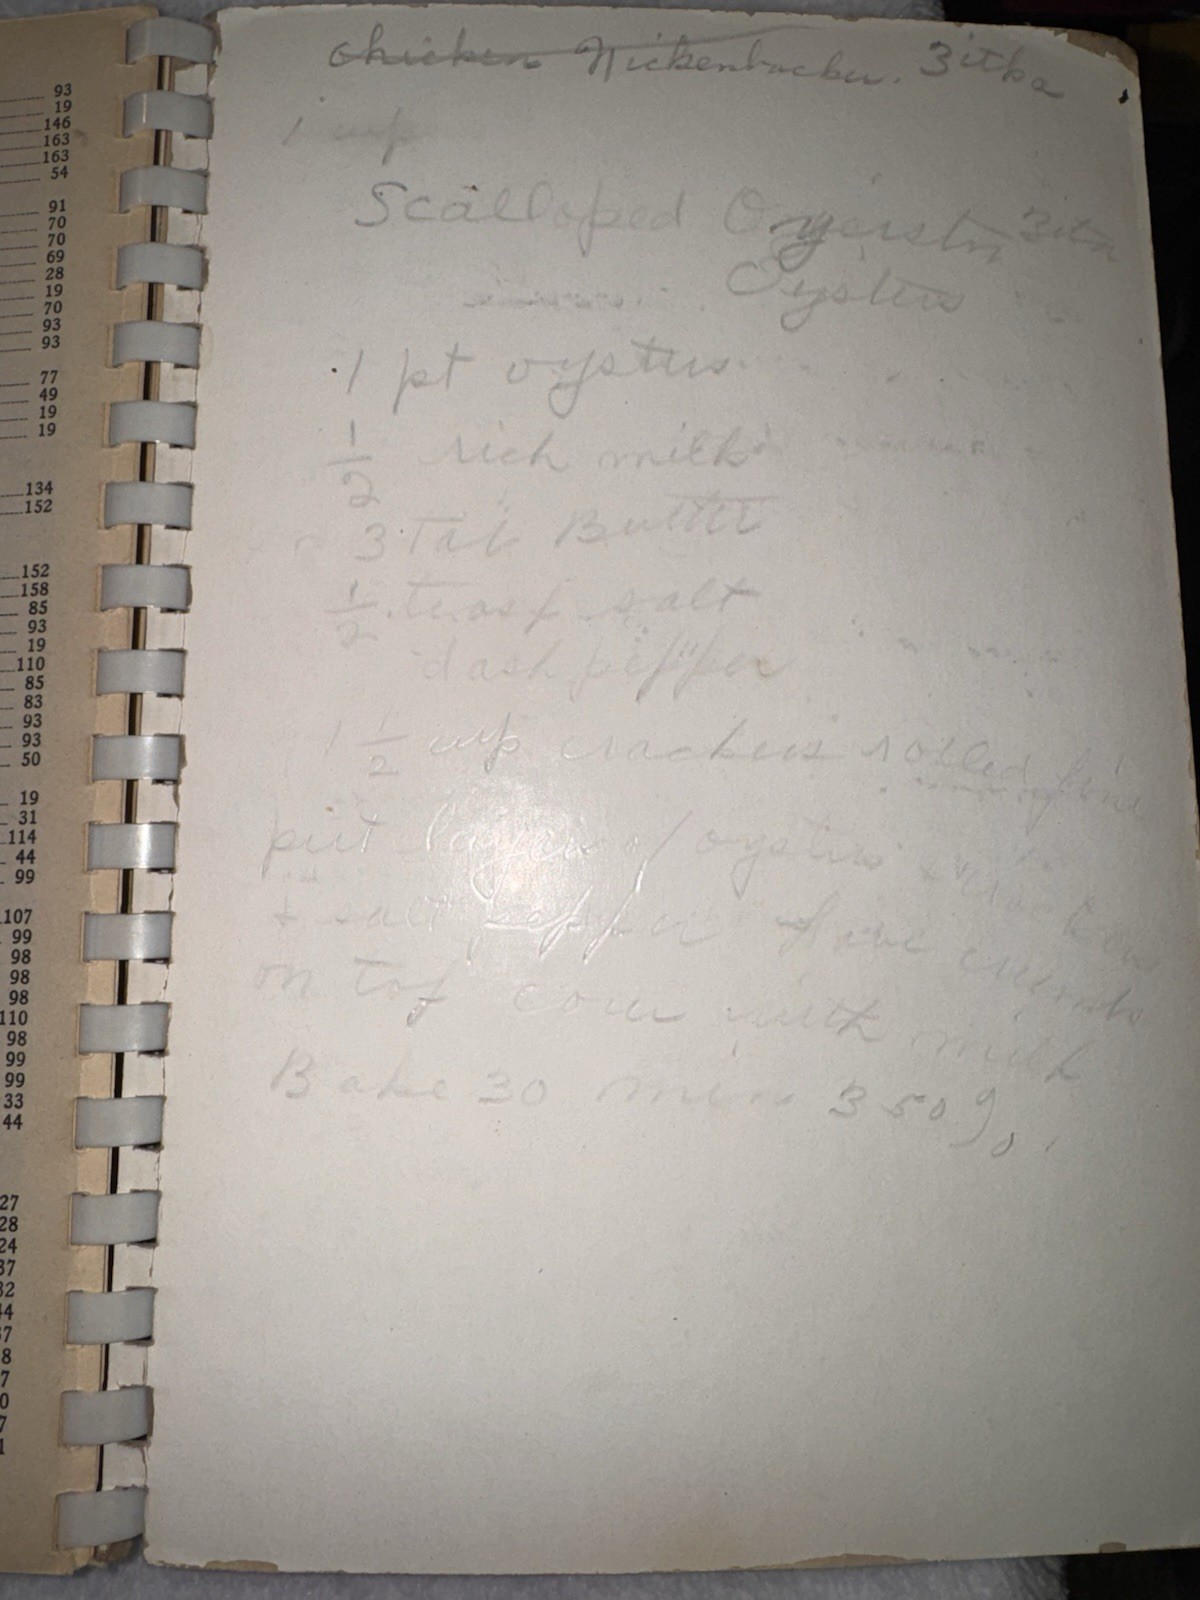 93
19
146
163
163
54
91
70
70
69
28
19
70
93
93
77
49
19
19
134
152
152
158
85
93
19
110
85
83
93
93
50
19
31
114
44
99
107
99
98
98
98
110
98
99
99
33
44
27
28
24
37
32
44
37
8
7
0
7
1
chicken Nickenbocker. Zitka
1 cup
Scalloped Oyerstrs Zitn
Oysters
1 pt oysters
1/2 rich milk
3 Tab Butter
1/2 teasp salt
dash pepper
1 1/2 cup crackers rolled fine
put layers of oysters crackers
+ salt pepper Have crumbs
on top cover with milk
Bake 30 min 350